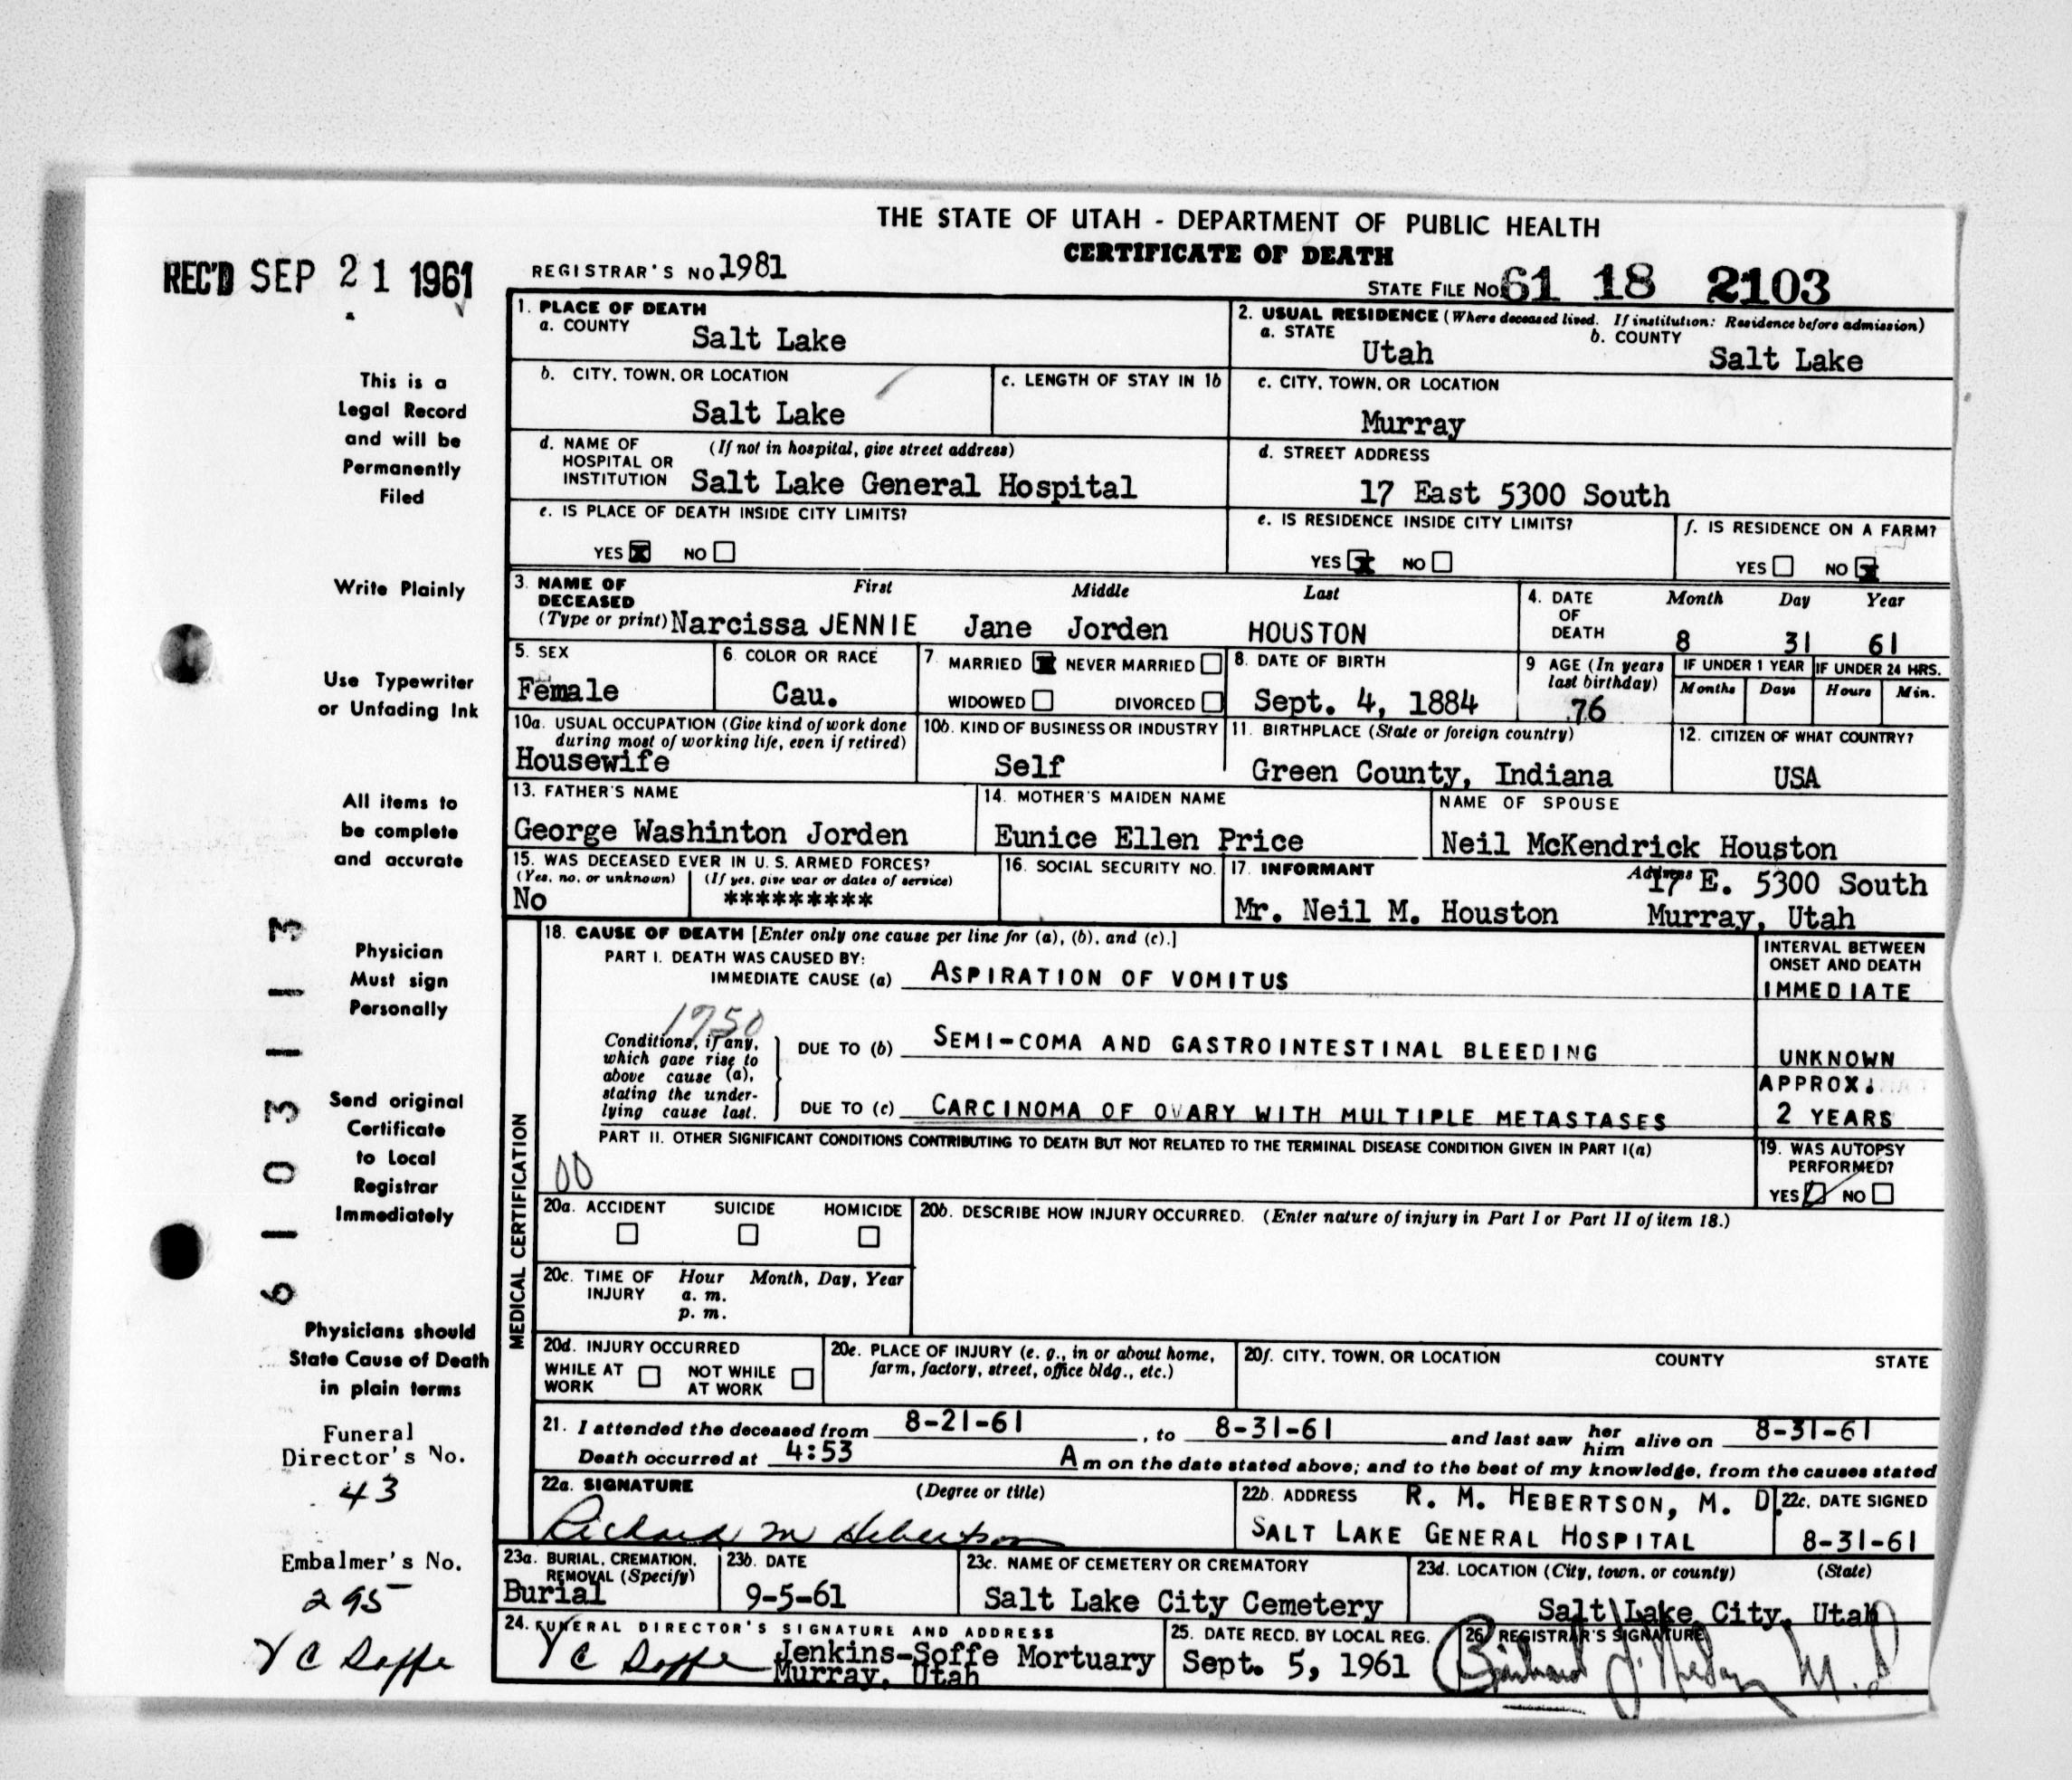 THE STATE OF UTAH - DEPARTMENT OF PUBLIC HEALTH
CERTIFICATE OF DEATH
REC'D SEP 21 1961
REGISTRAR'S NO 1981
STATE FILE NO. 61 18 2103
1. PLACE OF DEATH
a. COUNTY Salt Lake
2. USUAL RESIDENCE (Where deceased lived. If institution: Residence before admission)
a. STATE Utah b. COUNTY Salt Lake
b. CITY, TOWN, OR LOCATION Salt Lake
c. LENGTH OF STAY IN 1b
c. CITY, TOWN, OR LOCATION Murray
d. NAME OF HOSPITAL OR INSTITUTION (If not in hospital, give street address) Salt Lake General Hospital
d. STREET ADDRESS 17 East 5300 South
e. IS PLACE OF DEATH INSIDE CITY LIMITS?
YES X NO
e. IS RESIDENCE INSIDE CITY LIMITS?
YES X NO
f. IS RESIDENCE ON A FARM?
YES NO X
3. NAME OF DECEASED (Type or print) First Middle Last
Narcissa JENNIE Jane Jorden HOUSTON
4. DATE OF DEATH Month Day Year
8 31 61
5. SEX Female
6. COLOR OR RACE Cau.
7. MARRIED X NEVER MARRIED
WIDOWED DIVORCED
8. DATE OF BIRTH Sept. 4, 1884
9 AGE (In years last birthday) 76
IF UNDER 1 YEAR Months Days
IF UNDER 24 HRS. Hours Min.
10a. USUAL OCCUPATION (Give kind of work done during most of working life, even if retired) Housewife
10b. KIND OF BUSINESS OR INDUSTRY Self
11. BIRTHPLACE (State or foreign country) Green County, Indiana
12. CITIZEN OF WHAT COUNTRY? USA
13. FATHER'S NAME George Washinton Jorden
14. MOTHER'S MAIDEN NAME Eunice Ellen Price
NAME OF SPOUSE Neil McKendrick Houston
15. WAS DECEASED EVER IN U. S. ARMED FORCES?
(Yes, no, or unknown) No
(If yes, give war or dates of service) *********
16. SOCIAL SECURITY NO.
17. INFORMANT Mr. Neil M. Houston
Address 17 E. 5300 South
Murray, Utah
MEDICAL CERTIFICATION
18. CAUSE OF DEATH [Enter only one cause per line for (a), (b), and (c).]
PART I. DEATH WAS CAUSED BY:
IMMEDIATE CAUSE (a) ASPIRATION OF VOMITUS
INTERVAL BETWEEN ONSET AND DEATH
IMMEDIATE
1750
Conditions, if any, which gave rise to above cause (a), stating the underlying cause last.
DUE TO (b) SEMI-COMA AND GASTROINTESTINAL BLEEDING
UNKNOWN
DUE TO (c) CARCINOMA OF OVARY WITH MULTIPLE METASTASES
APPROX.
2 YEARS
PART II. OTHER SIGNIFICANT CONDITIONS CONTRIBUTING TO DEATH BUT NOT RELATED TO THE TERMINAL DISEASE CONDITION GIVEN IN PART I(a)
00
19. WAS AUTOPSY PERFORMED?
YES NO
20a. ACCIDENT SUICIDE HOMICIDE
20b. DESCRIBE HOW INJURY OCCURRED. (Enter nature of injury in Part I or Part II of item 18.)
20c. TIME OF INJURY Hour Month, Day, Year
a. m.
p. m.
20d. INJURY OCCURRED
WHILE AT WORK NOT WHILE AT WORK
20e. PLACE OF INJURY (e. g., in or about home, farm, factory, street, office bldg., etc.)
20f. CITY, TOWN, OR LOCATION COUNTY STATE
21. I attended the deceased from 8-21-61, to 8-31-61 and last saw her him alive on 8-31-61
Death occurred at 4:53 A m on the date stated above; and to the best of my knowledge, from the causes stated
22a. SIGNATURE (Degree or title)
Richard M Hebertson
22b. ADDRESS R. M. HEBERTSON, M. D.
SALT LAKE GENERAL HOSPITAL
22c. DATE SIGNED
8-31-61
23a. BURIAL, CREMATION, REMOVAL (Specify) Burial
23b. DATE 9-5-61
23c. NAME OF CEMETERY OR CREMATORY Salt Lake City Cemetery
23d. LOCATION (City, town, or county) (State)
Salt Lake City, Utah
24. FUNERAL DIRECTOR'S SIGNATURE AND ADDRESS
Jenkins-Soffe Mortuary
Murray, Utah
25. DATE RECD. BY LOCAL REG.
Sept. 5, 1961
26. REGISTRAR'S SIGNATURE
This is a
Legal Record
and will be
Permanently
Filed
Write Plainly
Use Typewriter
or Unfading Ink
All items to
be complete
and accurate
Physician
Must sign
Personally
Send original
Certificate
to Local
Registrar
Immediately
Physicians should
State Cause of Death
in plain terms
Funeral
Director's No.
43
Embalmer's No.
295
61031113